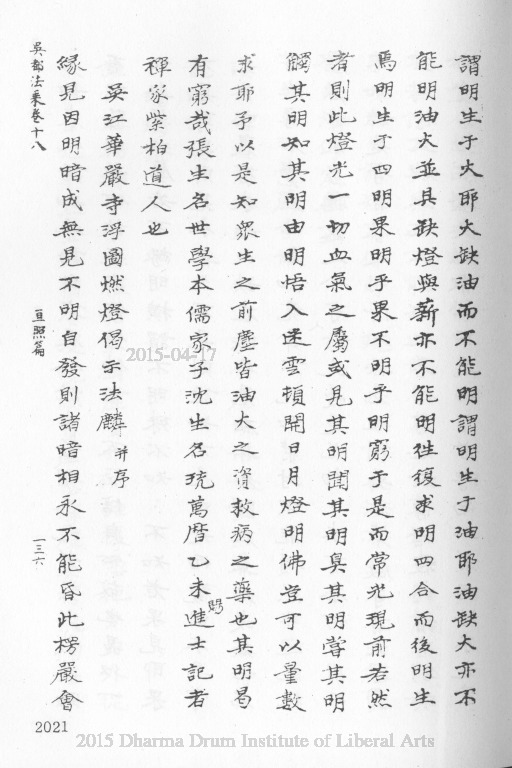 謂明生于火耶火缺油而不能明謂明生于油耶油缺火亦不
能明油火並具缺燈與薪亦不能明徃復求明四合而後明生
焉明生于四明果明乎果不明乎明窮于是而常光現前若然
者則此燈光一切血氣之屬或見其明聞其明臭其明嘗其明
觸其明知其明由明悟入迷雲頓開日月燈明佛豈可以量數
求耶予以是知眾生之前塵皆油火之資救病之藥也其明曷
有窮哉張生名世學本儒家子沈生名珫萬曆乙未進士記者
禪家紫柏道人也
吳江華嚴寺浮圖燃燈偈示法麟 并序
緣見因明暗成無見不明自發則諸暗相永不能昏此楞嚴會
吳都法乘卷十八
亘照篇
一三六
2021
2015-04-17
2015 Dharma Drum Institute of Liberal Arts